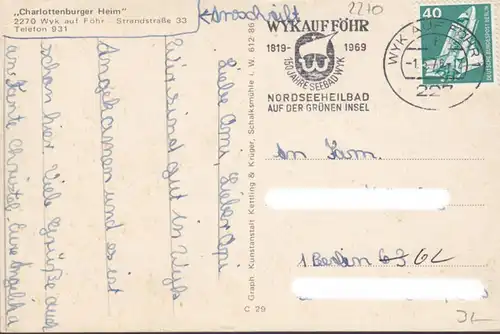 „Charlottenburger Heim"
2270 Wyk auf Föhr Strandstraße 33
Telefon 931
Anschrift
2270
WYK AUF FÖHR
1819- 1969
150 JAHRE SEEBAD WYK
NORDSEEHEILBAD
AUF DER GRÜNEN INSEL
WYK AUF
227
40
DEUTSCHE BUNDESPOST BERLIN
Liebe Omi, Lieber Opi
Wir sind gut in Wyk
Angekommen und es ist
schön hier Viele Grüße auch
an Christel. Eure Angelika
Graph. Kunstanstalt Kettling & Krüger, Schalksmühle i. W. 612/86
C 29
An Fam.
1 Berlin 62